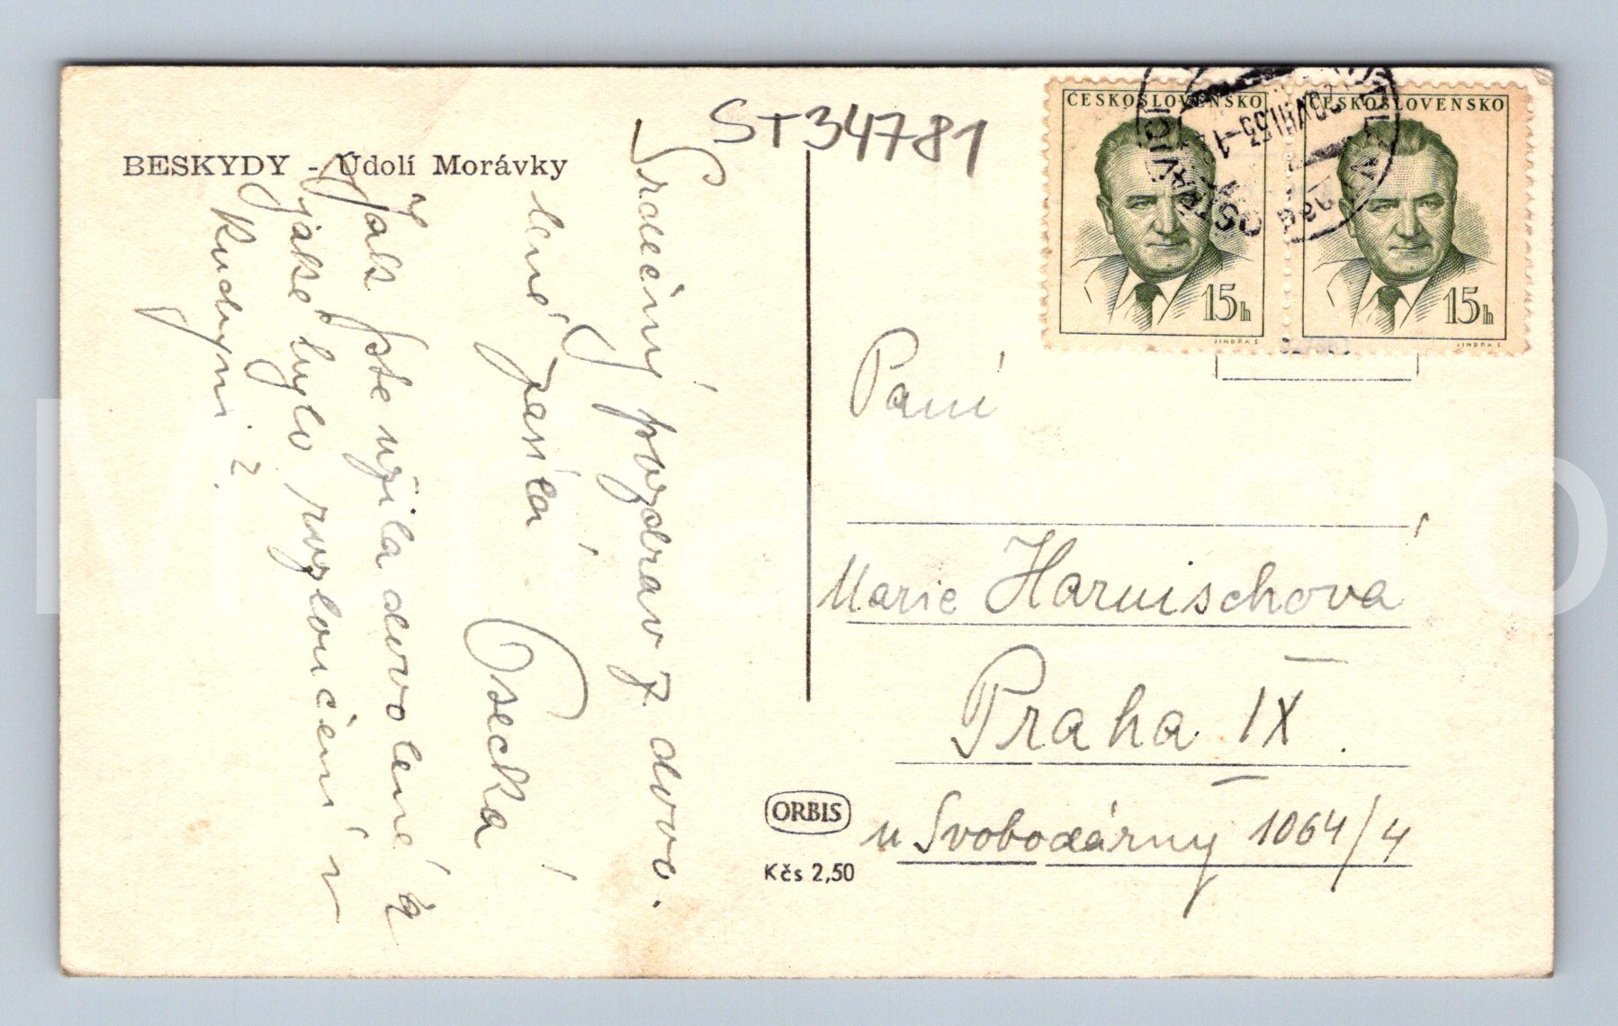 BESKYDY - Údolí Morávky
ST34781
Srdečný pozdrav z dovo.
lené zasílá
Psecká
Jak jste užila dovolené a
jaké bylo rozloučení v
ČESKOSLOVENSKO
15h
JINDRA Š
ČESKOSLOVENSKO
15h
JINDRA Š
Paní
Marie Harnischová
Praha IX.
u Svobodárny 1064/4
ORBIS
Kčs 2,50